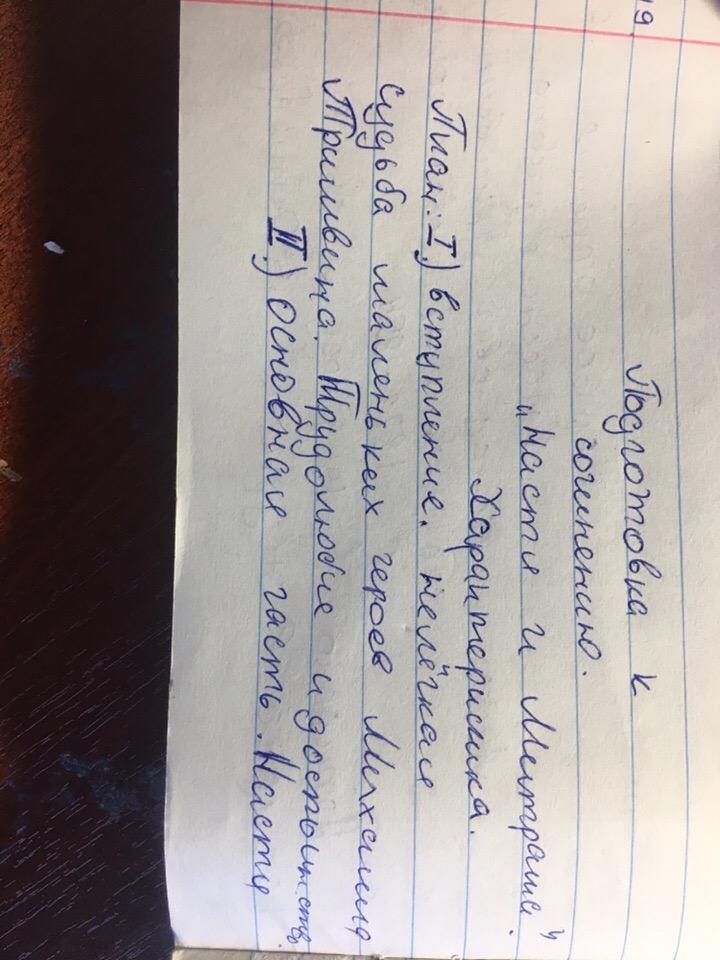 19
Подготовка к
сочинению.
„Настя и Митраша".
Характеристика.
План: I.) вступление. нелёгкая
судьба маленьких героев Михаила
Пришвина. Трудолюбие и достоинств.
II.) основная часть. Настя